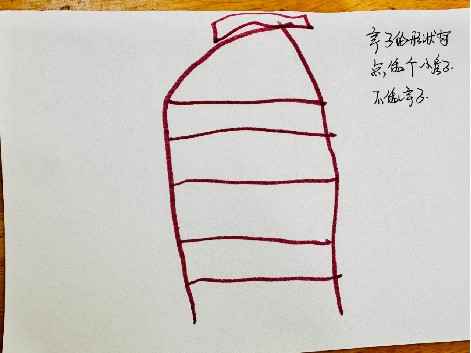 亭子的形状有
点像个小房子
不像亭子.